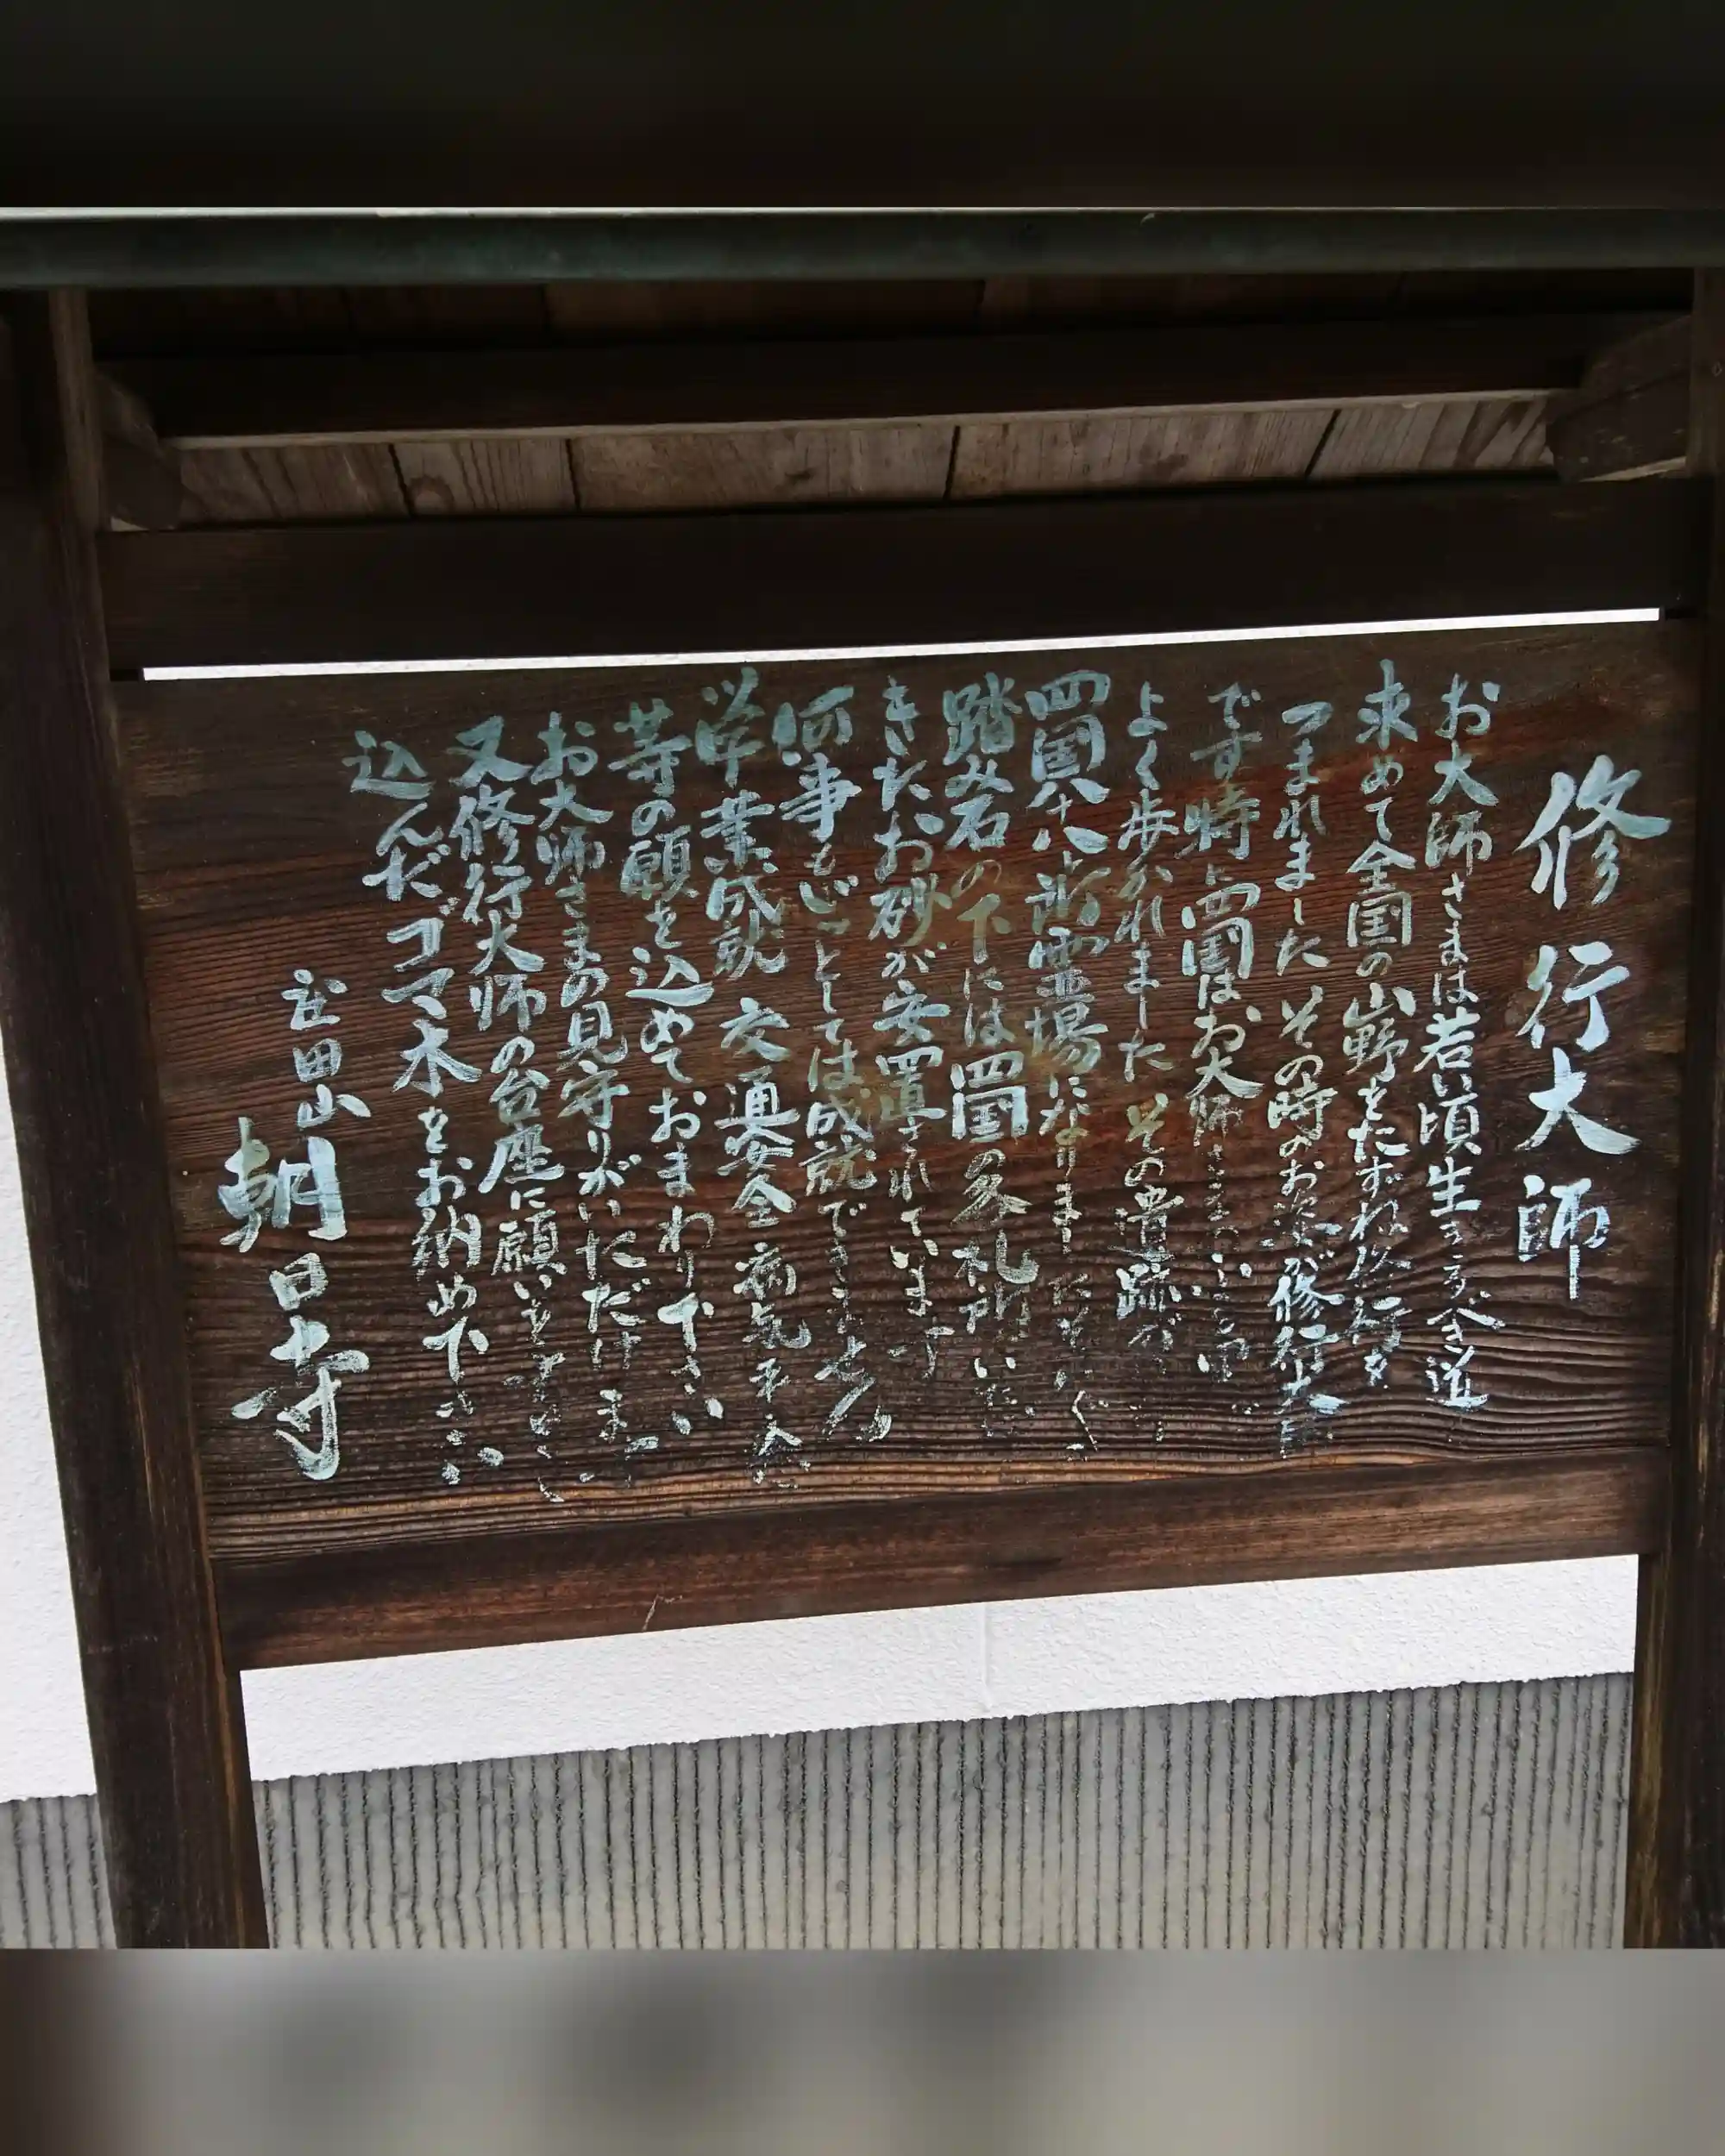 修行大師
お大師さまは若い頃生きるべき道
求めて全国の山野をたずね修行を
つまれました その時のお姿が修行大師
です 特に四国はお大師さま
よく歩かれました その遺跡が
四国八十八ヶ所霊場にがります
踏み石の下には四国の各札所
きたお砂が安置されています
何事もじっとしては成就できません
学業成就 交通安全 病気平
等の願を込めておまわり下さい
お大師さまの見守りがいただけます
又修行大師の台座に願い
込んだゴマ木をお納め下さい
玉田山 朝日寺